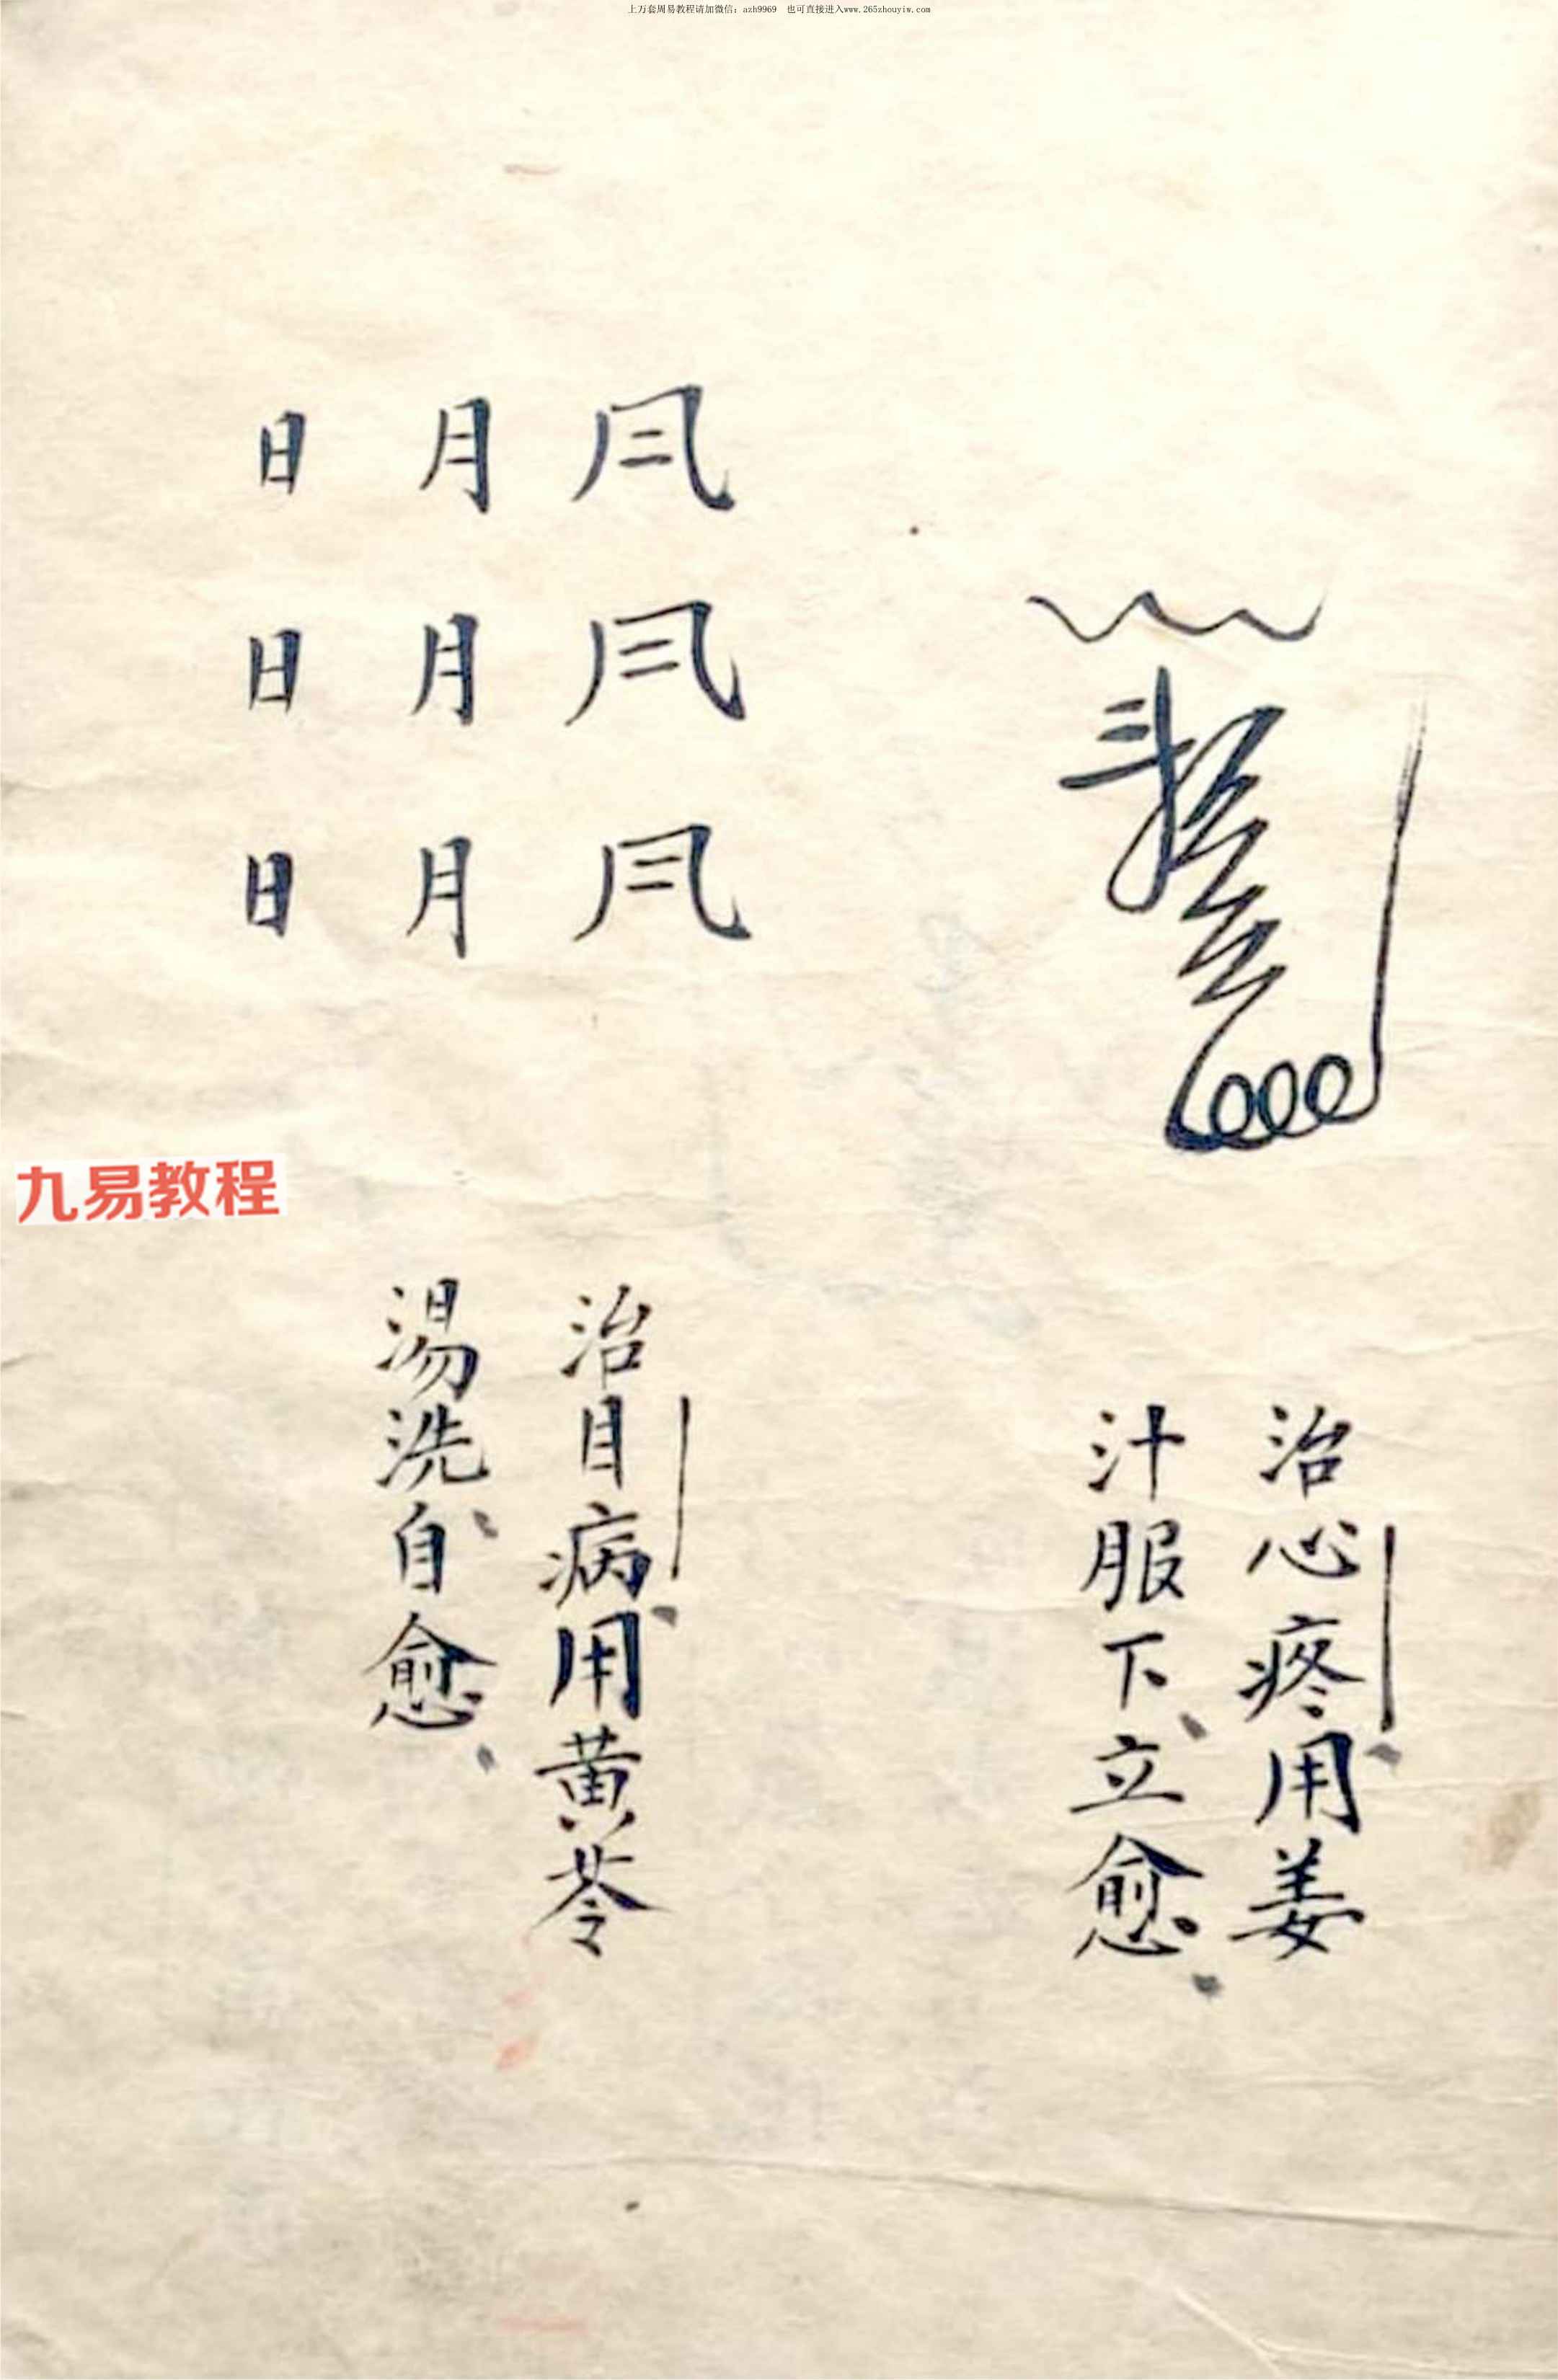 上万套周易教程请加微信：azh9969 也可直接进入www.265zhouyiw.com
治心疼用姜
汁服下立愈
月 月 月
日 日 日
治目病用黄苓
湯洗自愈
九易教程